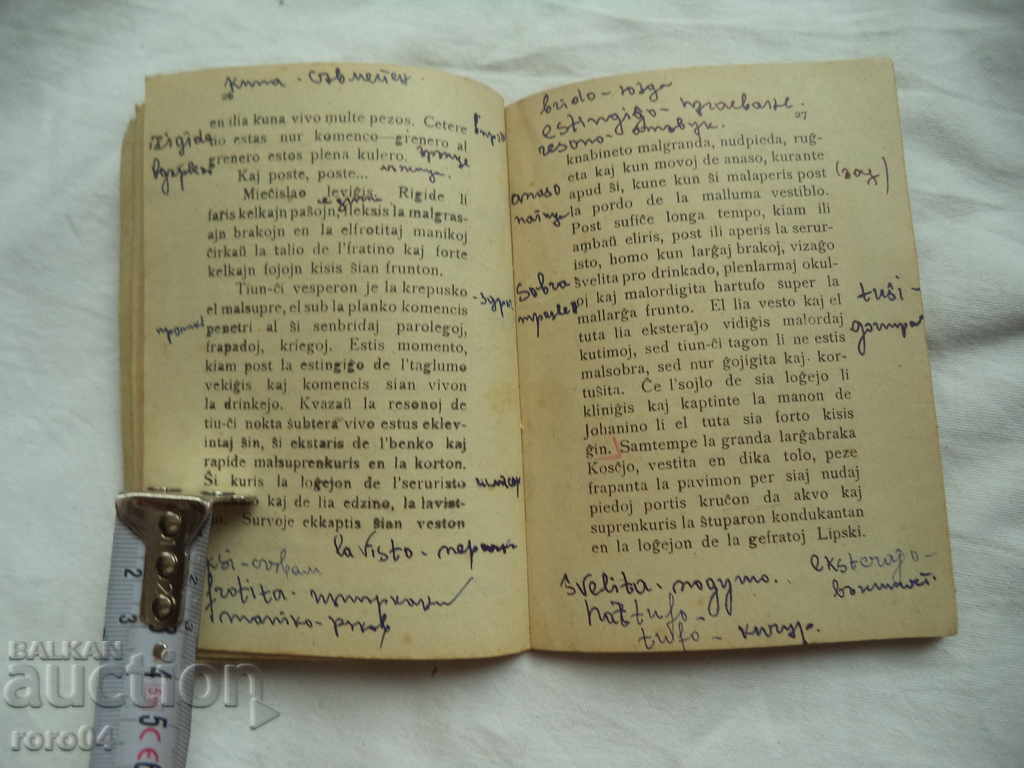 кuna - съвместен
26
en ilia kuna vivo multe pezos. Cetere
tio estas nur komenco—grenero al
grenero estos plena kulero.
Kaj poste, poste...
Miečislao leviĝis. Rigide li
faris kelkajn paŝojn, fleksis la malgras-
ajn brakojn en la elfrotitaj manikoj
ĉirkaŭ la talio de l'fratino kaj forte
kelkajn fojojn kisis ŝian frunton.
Tiun-ĉi vesperon je la krepusko
el malsupre, el sub la planko komencis
penetri al ŝi senbridaj parolegoj,
frapadoj, kriegoj. Estis momento,
kiam post la estingiĝo de l'taglumo
vekiĝis kaj komencis sian vivon
la drinkejo. Kvazaŭ la resonoj de
tiu-ĉi nokta subtera vivo estus eklev-
intaj ŝin, ŝi ekstaris de l'benko kaj
rapide malsuprenkuris en la korton.
Ŝi kuris la loĝejon de l'seruristo
kaj de lia edzino, la lavist-
Survoje ekkaptis ŝian veston
rigida
lavisto -
frotita -
maniko - ръкав
brido - юзда
estingiĝo - изгасване.
resono - отзвук.
27
knabineto malgranda, nudpieda, ruĝ-
eta kaj kun movoj de anaso, kurante
apud ŝi, kune kun ŝi malaperis post
la pordo de la malluma vestiblo.
Post sufiĉe longa tempo, kiam ili
ambaŭ eliris, post ili aperis la serur-
isto, homo kun larĝaj brakoj, vizaĝo
ŝvelita pro drinkado, plenlarmaj okul-
oj kaj malordigita hartufo super la
mallarĝa frunto. El lia vesto kaj el
tuta lia eksterajo vidiĝis malordaj
kutimoj, sed tiun-ĉi tagon li ne estis
malsobra, sed nur ĝojigita kaj kor-
tuŝita. Ĉe l'sojlo de sia loĝejo li
kliniĝis kaj kaptinte la manon de
Johanino li el tuta sia forto kisis
ĝin. Samtempe la granda larĝabraka
Kosĉjo, vestita en dika tolo, peze
frapanta la pavimon per siaj nudaj
piedoj portis kruĉon da akvo kaj
suprenkuris la ŝtuparon kondukantan
en la loĝejon de la gefratoj Lipski.
anaso
sobra
tuŝi -
ŝvelita - подуто..
eksterajo -
hartufo -
tufo - кичур.
BALKAN
auction
roro04
2 3 4 5